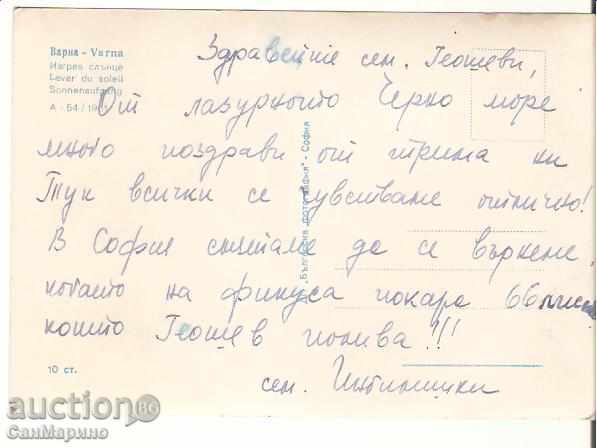 Варна - Varna
Изгрев слънце
Lever du soleil
Sonnenaufgang
А - 54 / 19
Здравейте сем. Геошеви,
От лазурното Черно море
много поздрави от трима ни
Тук всички се чувстваме отлично!
В София смятаме да се върнеме
когато на фикуса покара 66 лист
който Геошев полива?!!!
сем.
"Българска фотография" - София
10 ст.
auction BG
СанМарино